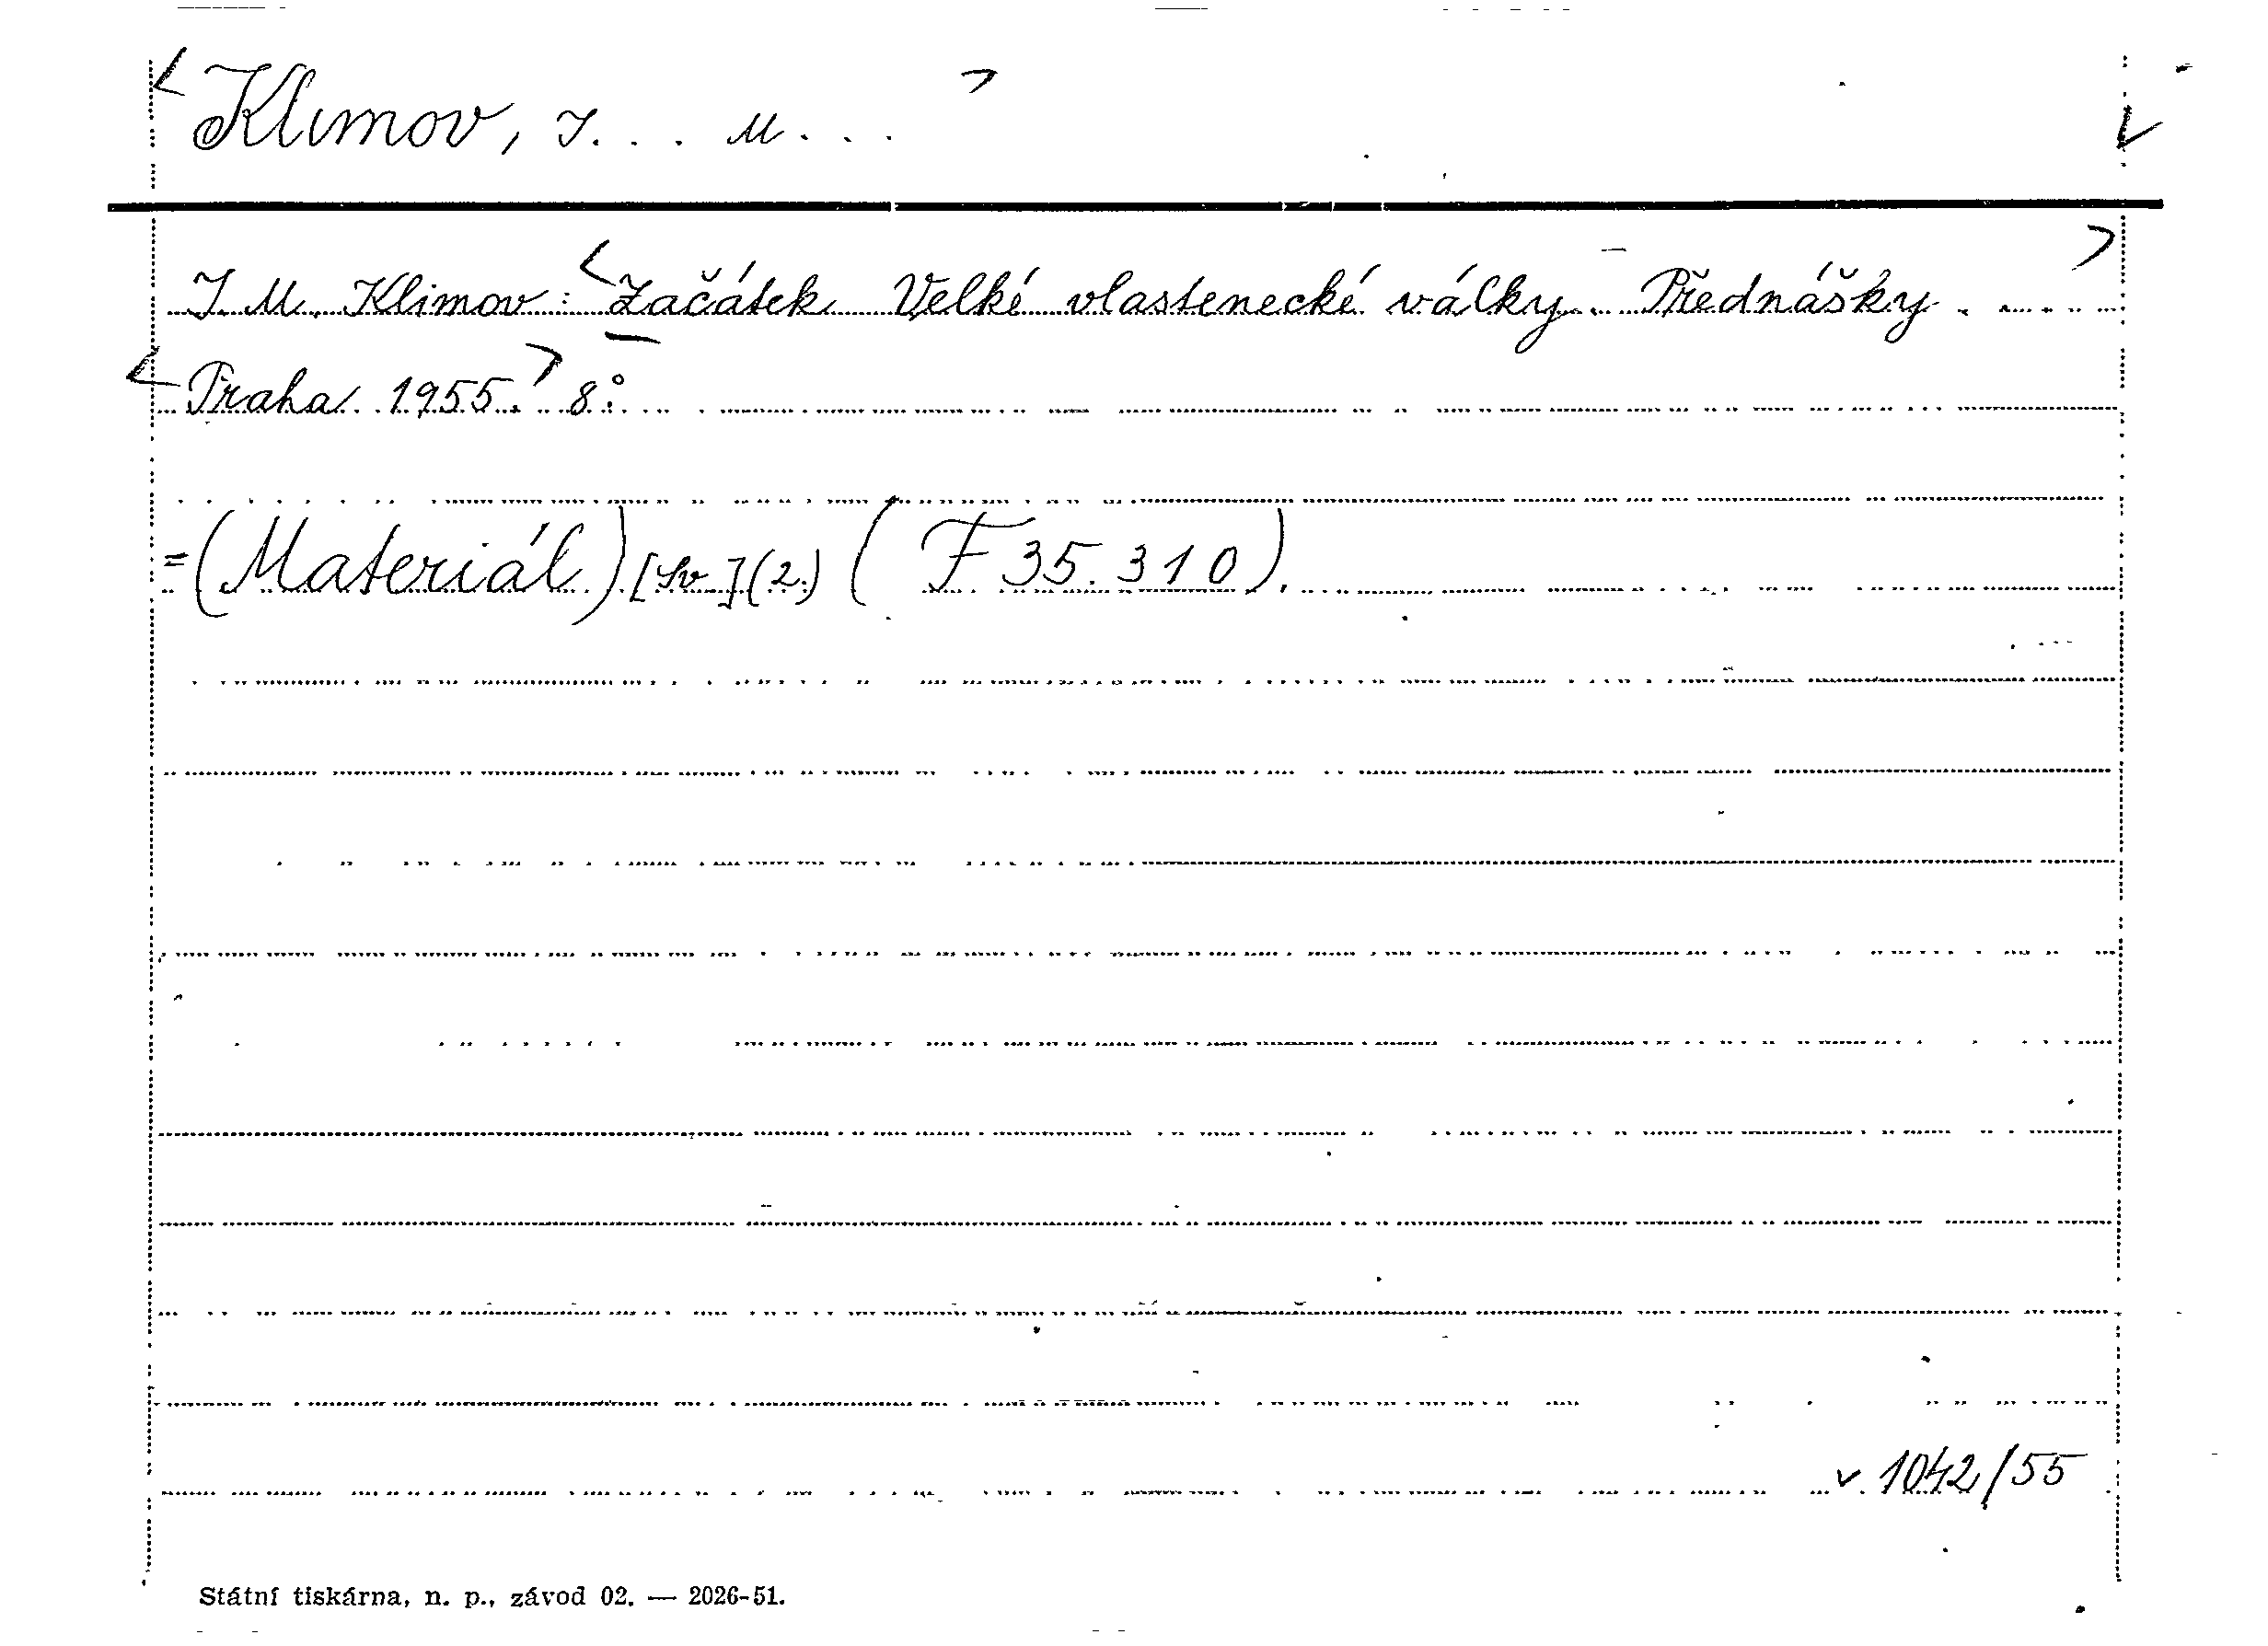 <Klimov, I... M...>
I. M. Klimov: <Začátek Velké vlastenecké války. Přednášky.>
<Praha 1955.> 8°.
=(Materiál)[Sv.](2.) (F 35.310).
v 1042/55
Státní tiskárna, n. p., závod 02. — 2026-51.